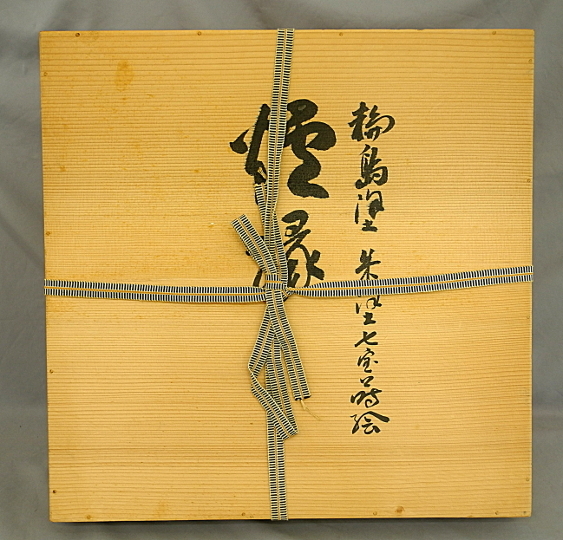 輪島塗 朱塗七宝蒔絵
炉縁